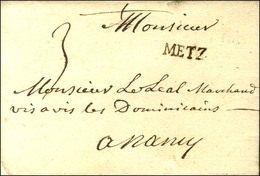 Monsieur
3
METZ
Monsieur Le Leal Marchand
vis a vis les Dominicains
a nancy